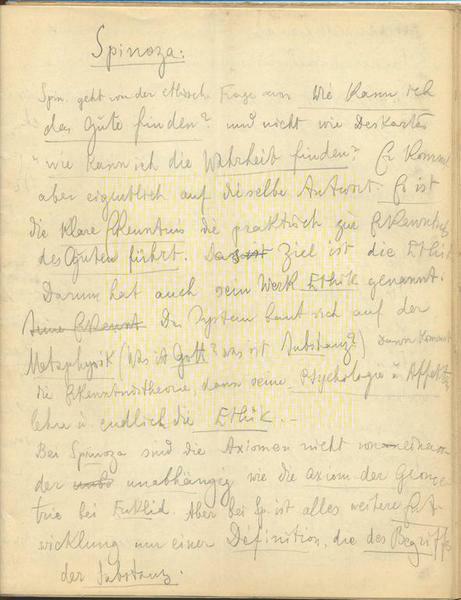 Spinoza:
Spin. geht von der ethisch. Frage aus wie kann ich
das Gute finden? und nicht wie Deskartes
"wie kann ich die Wahrheit finden? Er kommt
aber eigentlich auf dieselbe Antwort. Es ist
die klare Erkenntnis die praktisch zur Erkenntnis
des Guten führt. Das ist Ziel ist die Ethik
Darum hat auch sein Werk Ethik genannt.
Seine Erkennt Das System baut sich auf der
Metaphysik (Was ist Gott? was ist Substanz?) dann kommt
die Erkenntnistheorie, dann seine Psychologie u Affekt
lehre u endlich die Ethik. -
Bei Spinoza sind die Axiomen nicht von einan
der unabhängig wie die Axiom der Geome
trie bei Euklid. Aber bei Sp. ist alles weitere Ent
wicklung nur einer Definition, die des Begriffs
der Substanz.